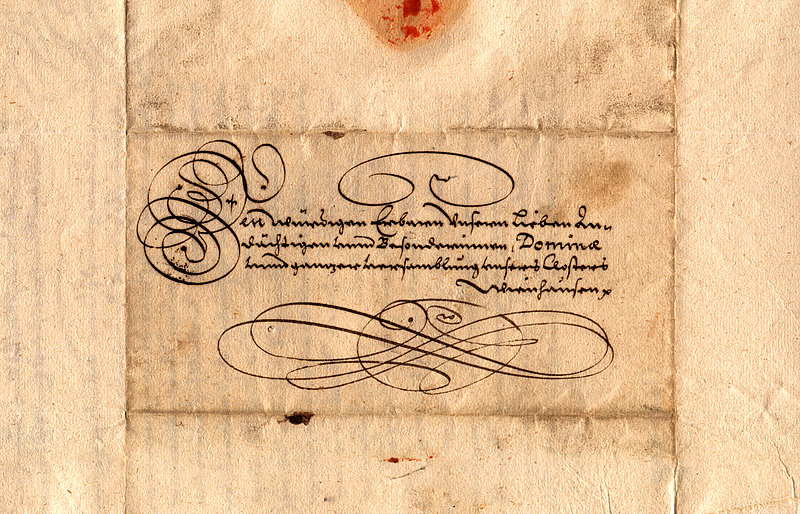 Den würdigen Erbaren Unseren Lieben An-
dächtigen unnd Besonderinnen, Dominæ
unnd gantzer versamblung unsers Closters
Wienhausen